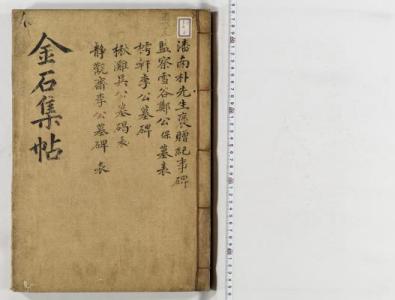 潘南朴先生褒贈紀事碑
監察雪谷鄭公保墓表
樗軒李公墓碑
楸灘吳公墓碣表
靜觀齋李公墓碑 表
金石集帖